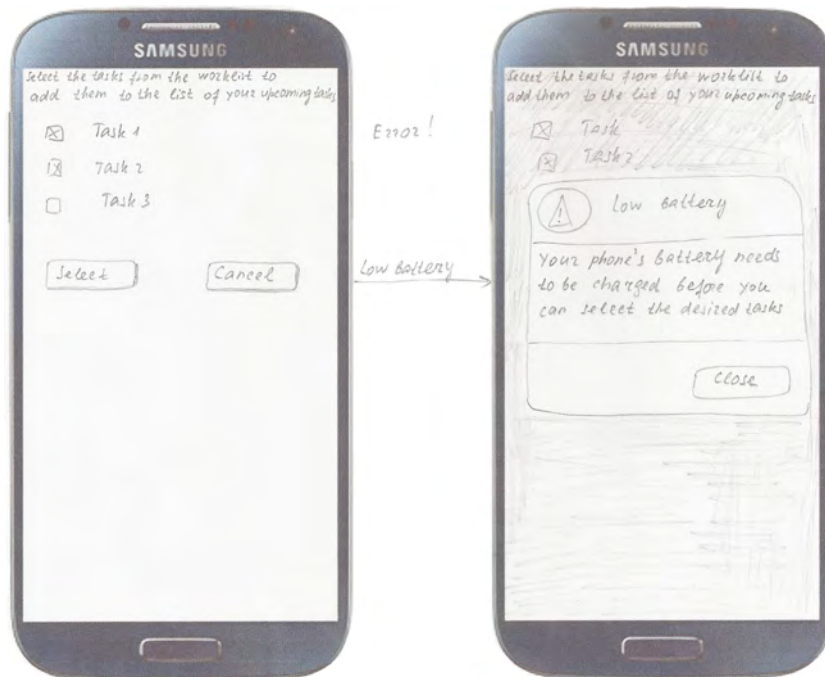 SAMSUNG
Select the tasks from the worklist to
add them to the list of your upcoming tasks
Task 1
Task 2
Task 3
Select
Cancel
Error!
Low Battery
SAMSUNG
Select the tasks from the worklist to
add them to the list of your upcoming tasks
Task
Task 2
Low Battery
Your phone's Battery needs
to be charged before you
can select the desired tasks
Close